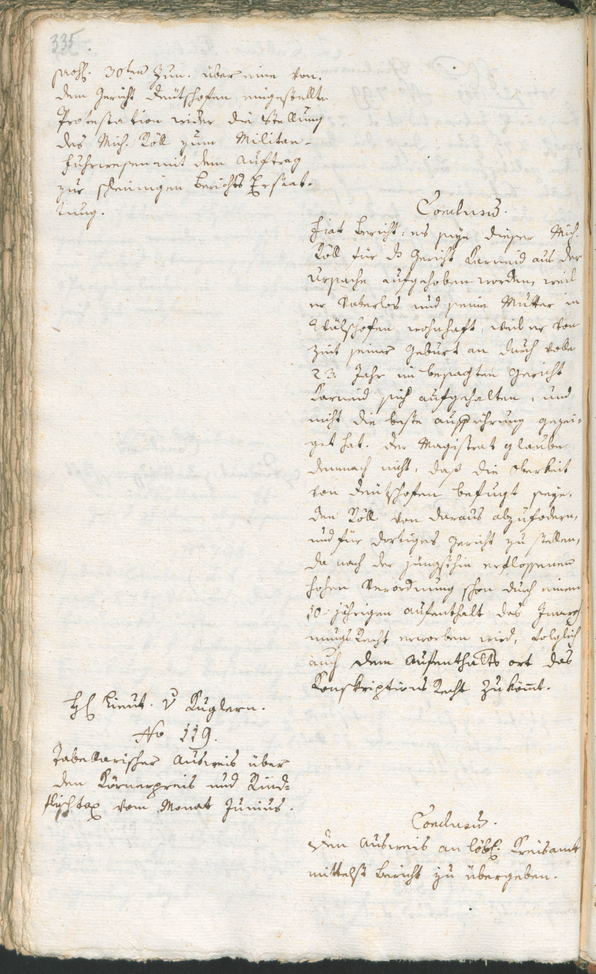 335.
praes. 30ten Jun. über eine von
dem Gericht Deutschofen eingestellte
Protestation wider die Stellung
des Mich. Köll zum Militär-
fuhrwesen mit dem Auftrag
zur schleunigen Berichts Erstat-
tung.
Conclusum.
Fiat Bericht: es seye dieser Mich.
Köll für ds Gericht Karneid aus der
Ursache aufgehoben worden, weil
er Vaterlos und seine Muter in
Wälschofen wohnhaft, weil er von
Zeit seiner Geburt an durch volle
23 Jahr im besagten Gericht
Karneid sich aufgehalten, und
nicht die beste Aufführung gezei-
get hat. Der Magistrat glaube
demnach nicht, daß die Oberkeit
von Deutschofen befugt seye,
den Köll von daraus abzufodern,
und für dortiges Gericht zu stellen,
da nach der jüngsthin erflossenen
hohen Verordnung schon durch einen
10 jährigen Aufenthalt das
Recht erworben wird, folglich
auch dem Aufenthalts ort das
Konskriptions Recht zukömt.
H Lieut. v Kuglern.
No 119.
Tabellarischer Ausweis über
den Körnerpreis und Rind-
fleischtax vom Monat Junius.
Conclusum.
Den Ausweis an löbl. Kreisamt
mittelst Bericht zu übergeben.